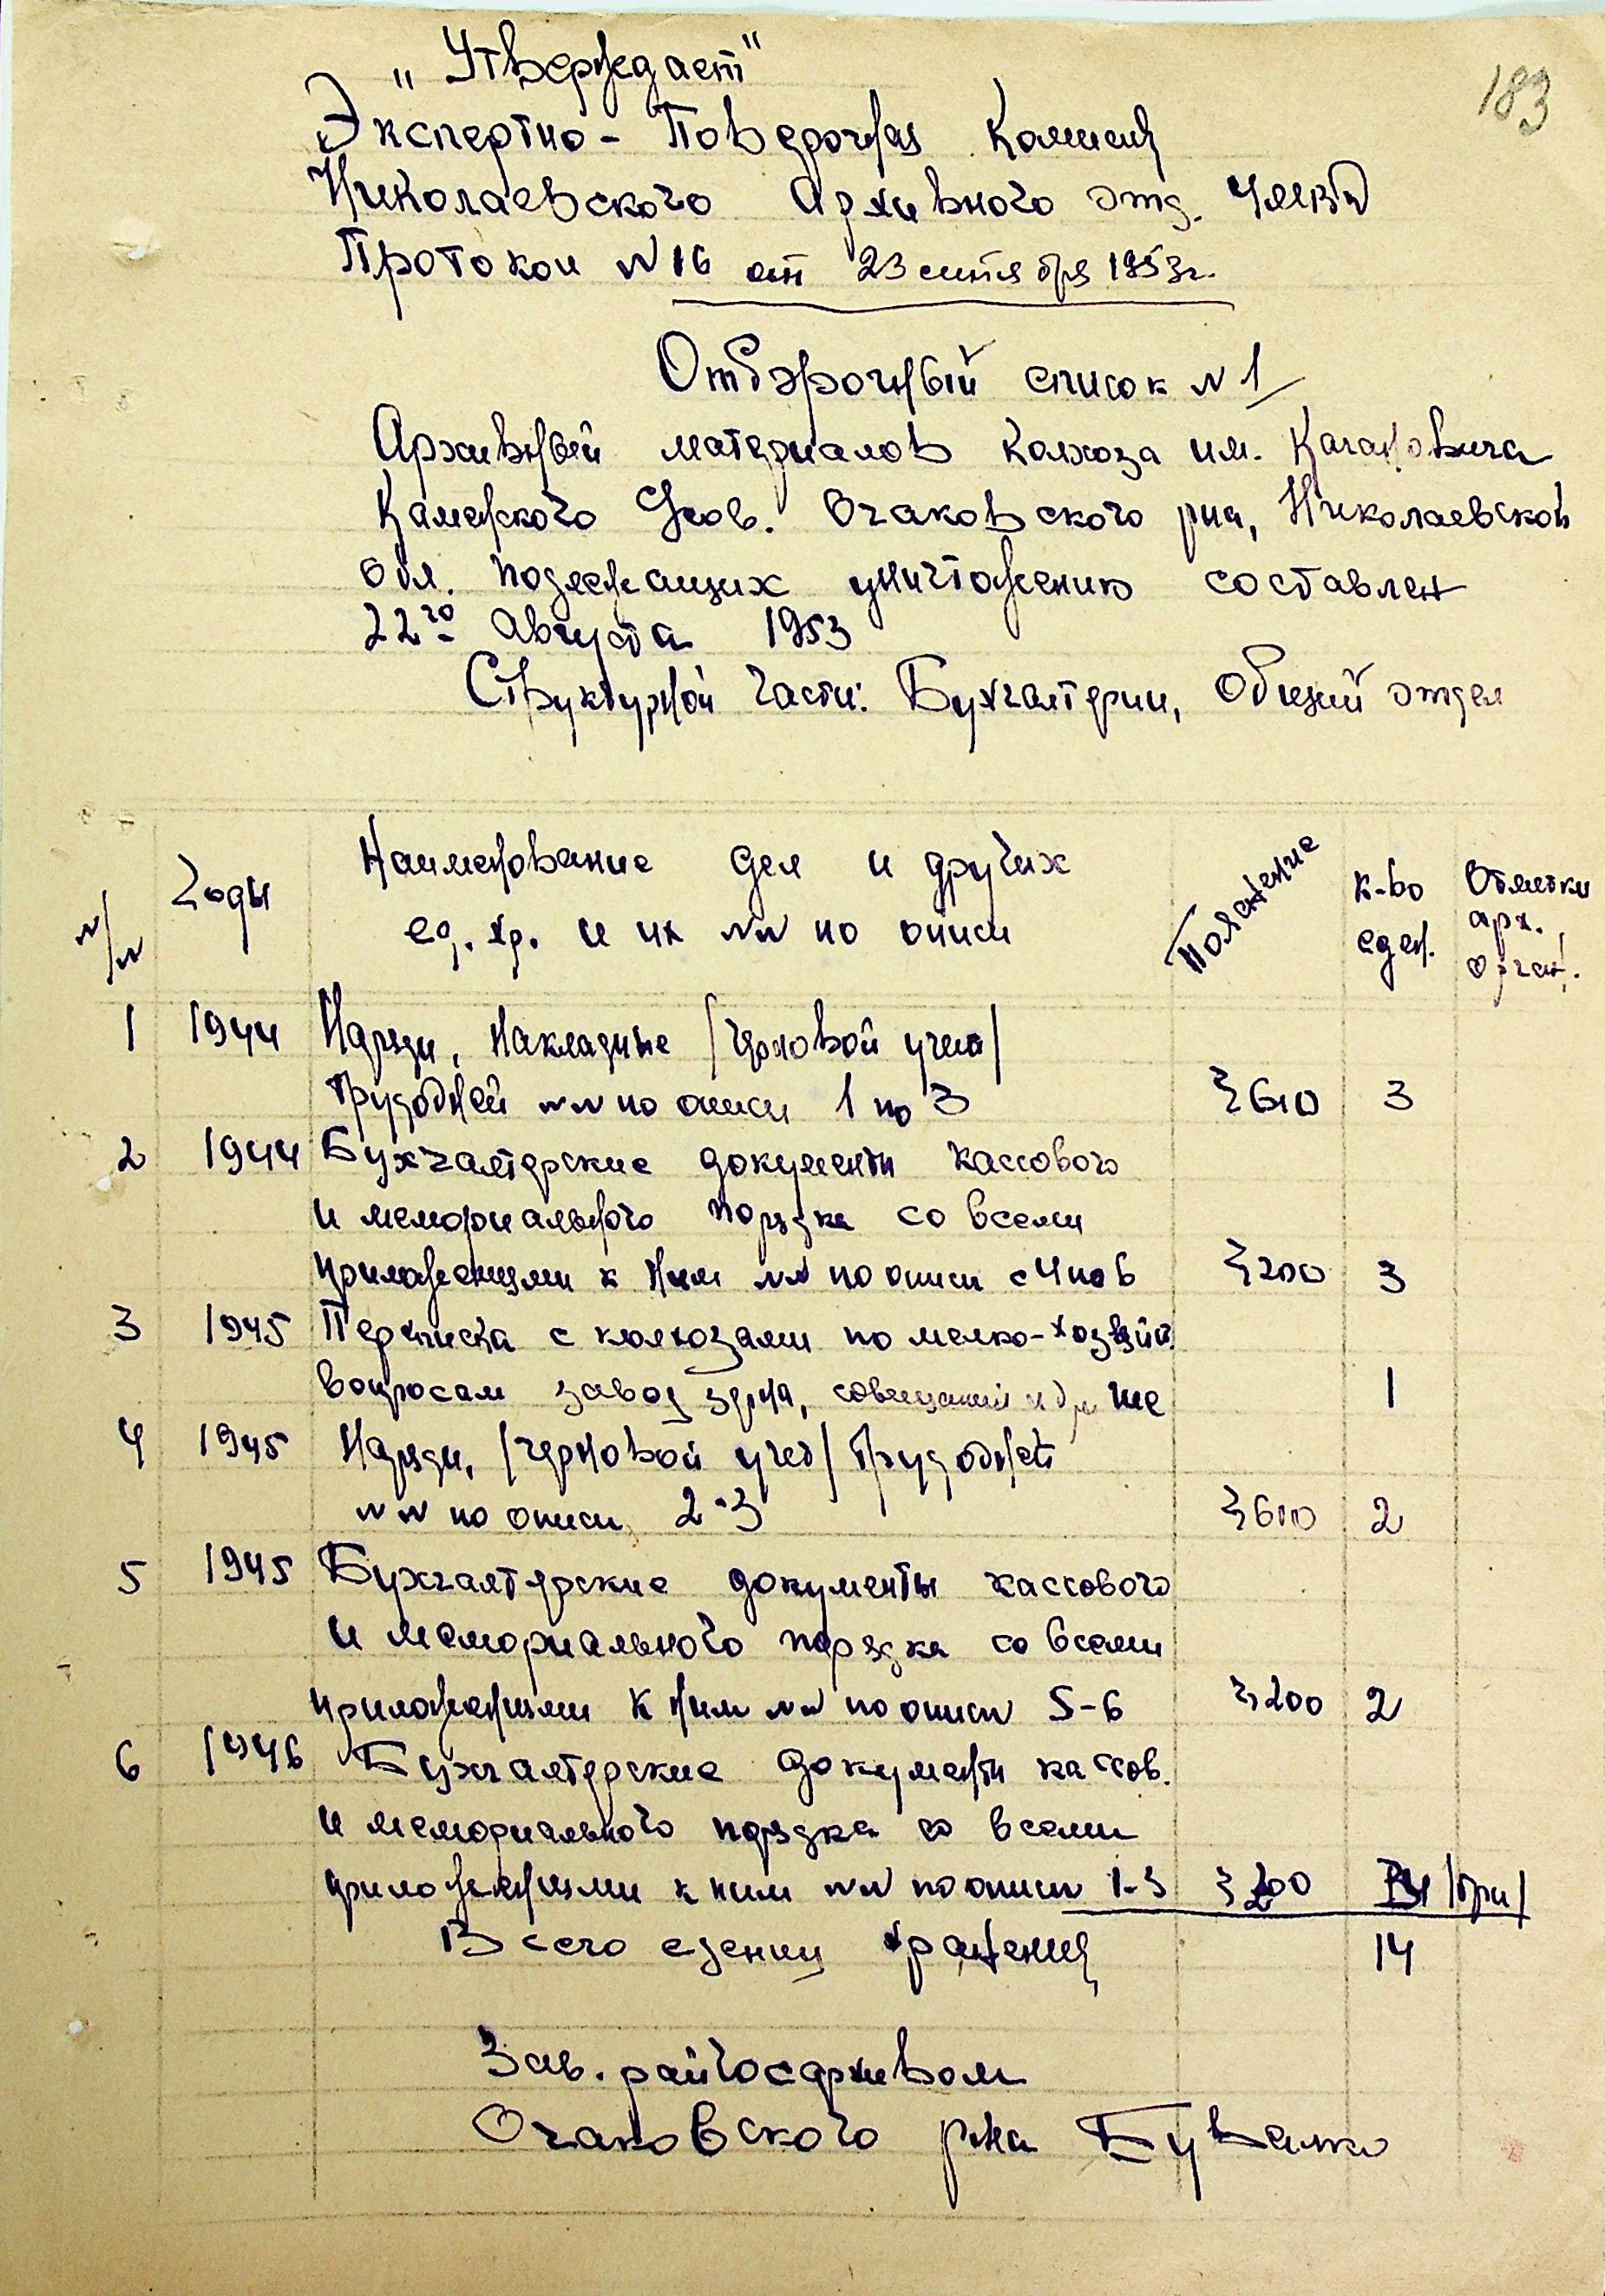 183
„Утверждает"
Экспертно-Поверочная Комисия
Николаевского Архивного отд. УМВД
Протокол №16 от 23 сентября 1953г.
Отборочный список №1
Архивный материалов Колхоза им. Кагановича
Каменского Очаковского р-на, Николаевской
Обл. подлежащих уничтожению составлен
22го Августа 1953
Структурной части: Бухгалтерии, Общий отдел
№/№ Годы Наименование дел и других
ед. хр. и их №№ по описи
Пояснение
к-во
един.
Отметки
арх.
орган.
1 1944 Наряди, Накладные /черновой учет/
трудодней №№ по описи 1 по 3 § 610 3
2 1944 Бухгалтерские документи кассового
и мемориального порядка со всеми
приложенями к ним №№ по описи с 4 по 6 § 200 3
3 1945 Переписка с колхозами по мелко-хозяйст.
вопросам завоз зерна, совещаний и др. 1
4 1945 Наряди, /черновой учет/ трудодней
№№ по описи 2-3 § 610 2
5 1945 Бухгалтерские документы кассового
и мемориального порядка со всеми
приложенями к ним №№ по описи 5-6 § 200 2
6 1946 Бухгалтерские документи кассов.
и мемориального порядка со всеми
приложенями к ним №№ по описи 1-3 § 200 /три/
Всего единиц хранения 14
Зав. райгосархивом
Очаковского р-на